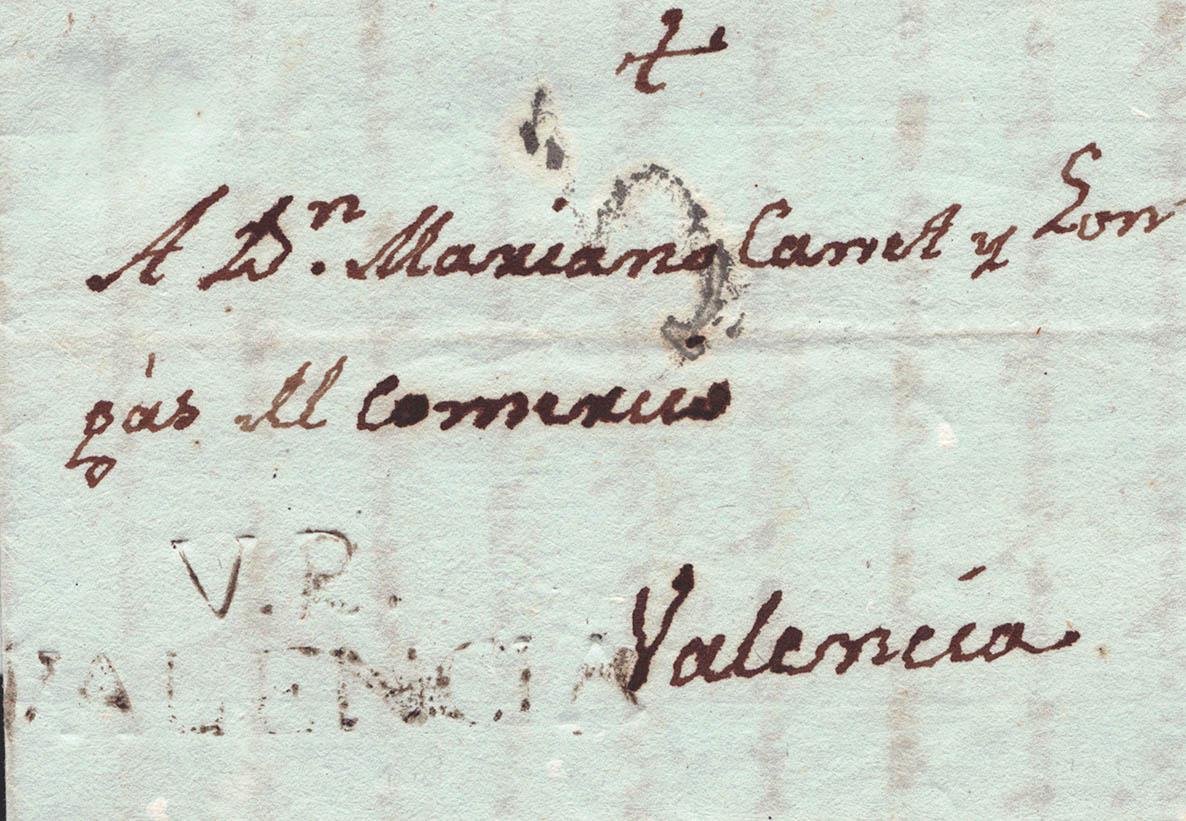 A Dn. Mariano Canet y Lon
gás del Comercio
V.R.
VALENCIA
Valencia